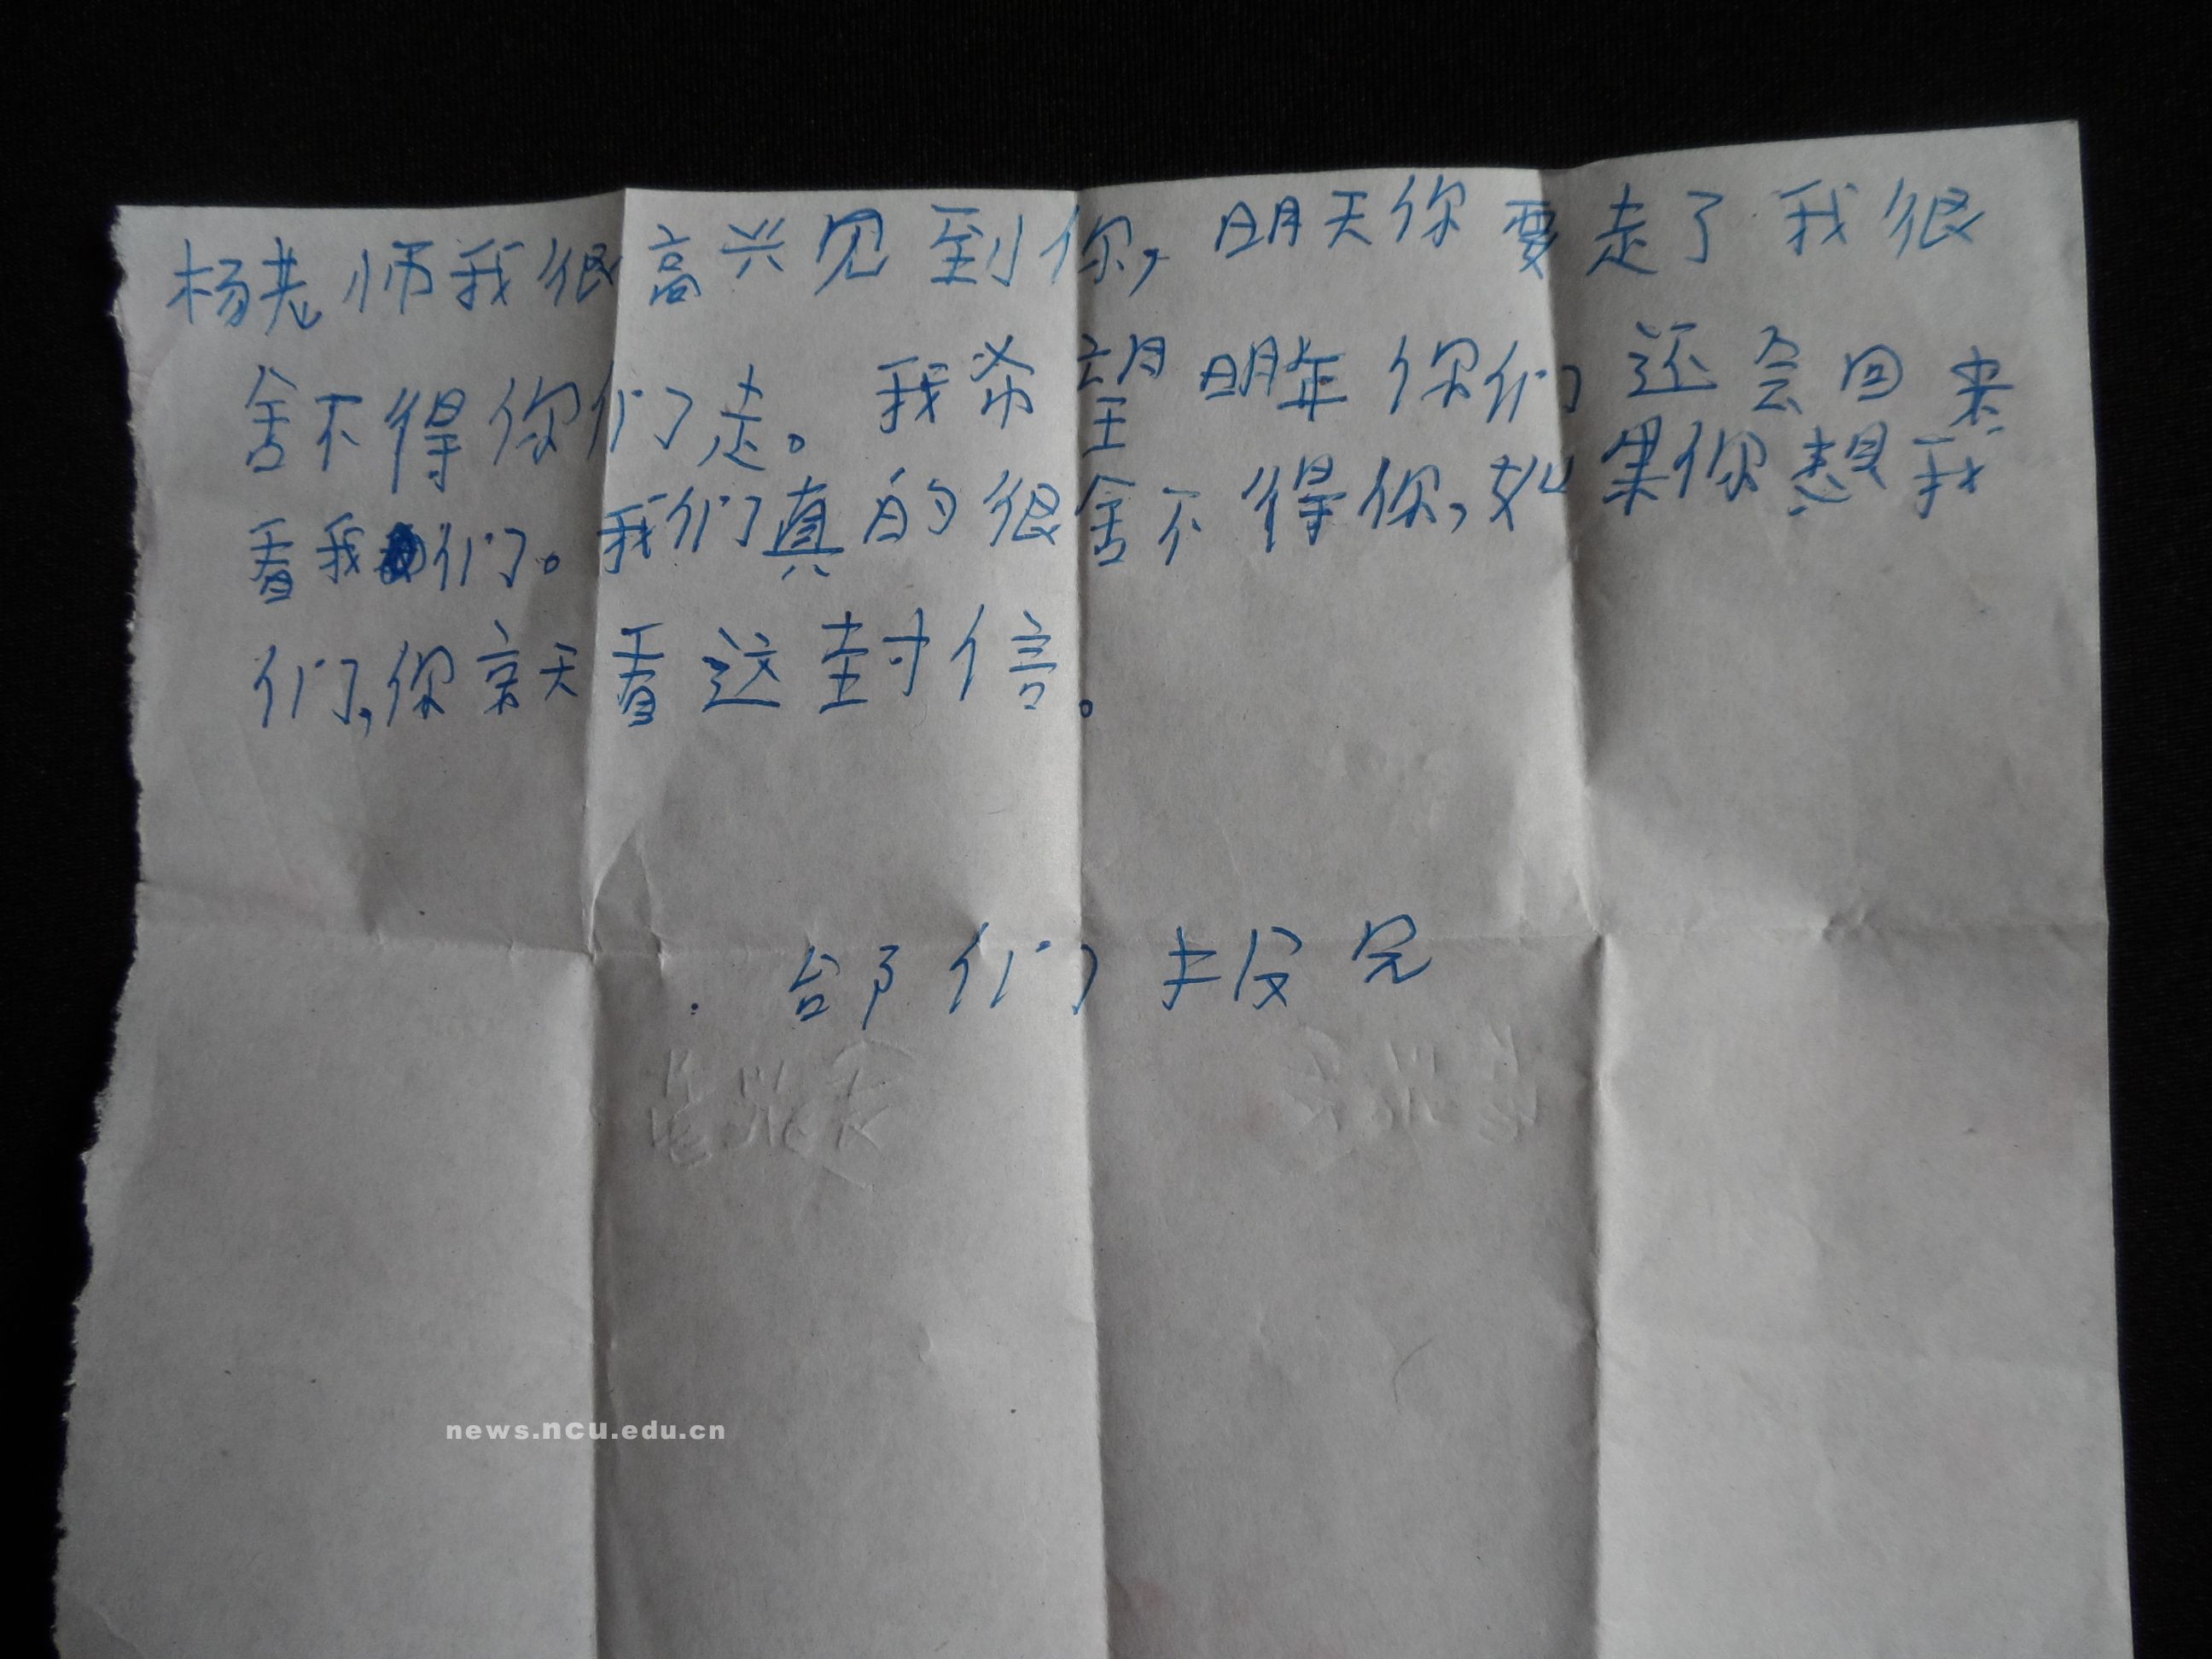 杨老师我很高兴见到你,明天你要走了我很
舍不得你们走。我希望明年你们还会回来
看我们。我们真的很舍不得你,如果你想我
们,你京天看这封信。
news.ncu.edu.cn